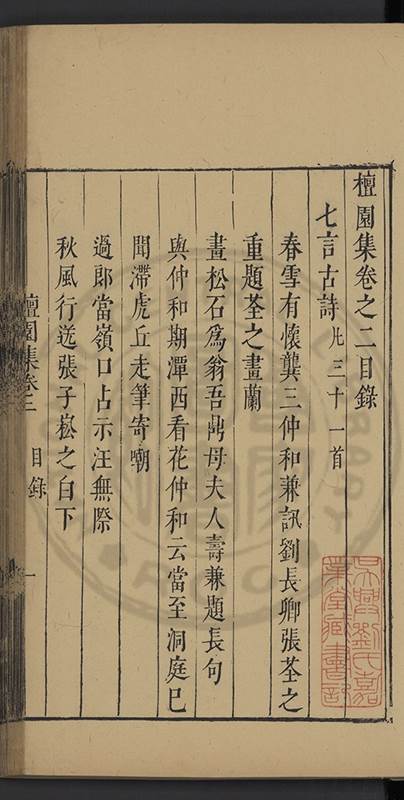 檀園集卷之二目錄
七言古詩 凡三十一首
春雪有懷龔三仲和兼訊劉長卿張荃之
重題荃之畫蘭
畫松石爲翁吾鼎母夫人壽兼題長句
與仲和期潭西看花仲和云當至洞庭已
聞滯虎丘走筆寄嘲
過郎當嶺口占示汪無際
秋風行送張子崧之白下
檀園集卷二
目錄
一
吳興劉氏嘉
業堂藏書記